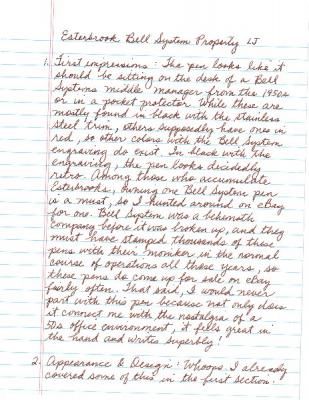 Esterbrook Bell System Property LJ
1. First impressions: The pen looks like it
should be sitting on the desk of a Bell
Systems middle manager from the 1950s
or in a pocket protector. While these are
mostly found in black with the stainless
steel trim, others supposedly have ones in
red, so other colors with the Bell System
engraving do exist. In black with the
engraving, the pen looks decidedly
retro. Among those who accumulate
Esterbrooks, owning one Bell System pen
is a must, so I hunted around on eBay
for one. Bell System was a behemoth
company before it was broken up, and they
must have stamped thousands of these
pens with their moniker in the normal
course of operations all those years, so
these pens do come up for sale on eBay
fairly often. That said, I would never
part with this pen because not only does
it connect me with the nostalgia of a
50s office environment, it feels great in
the hand and writes superbly!
2. Appearance & Design: Whoops. I already
covered some of this in the first section.